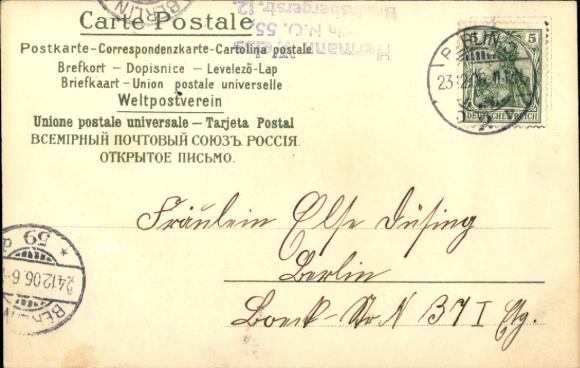 BERLIN
Carte Postale
Postkarte-Correspondenzkarte-Cartolina postale
Brefkort - Dopisnice - Levelező-Lap
Briefkaart - Union postale universelle
Weltpostverein
Unione postale universale - Tarjeta Postal
ВСЕМІРНЫЙ ПОЧТОВЫЙ СОЮЗЪ. РОССІЯ.
ОТКРЫТОЕ ПИСЬМО.
Hermann Weiss
Berlin N.O. 55,
Braunsbergerstr. 12.
5
DEUTSCHES REICH
23.12.06
Fräulein Else Düsing
Berlin
Str. N 37 I
BERLIN
59
24.12.06.6-